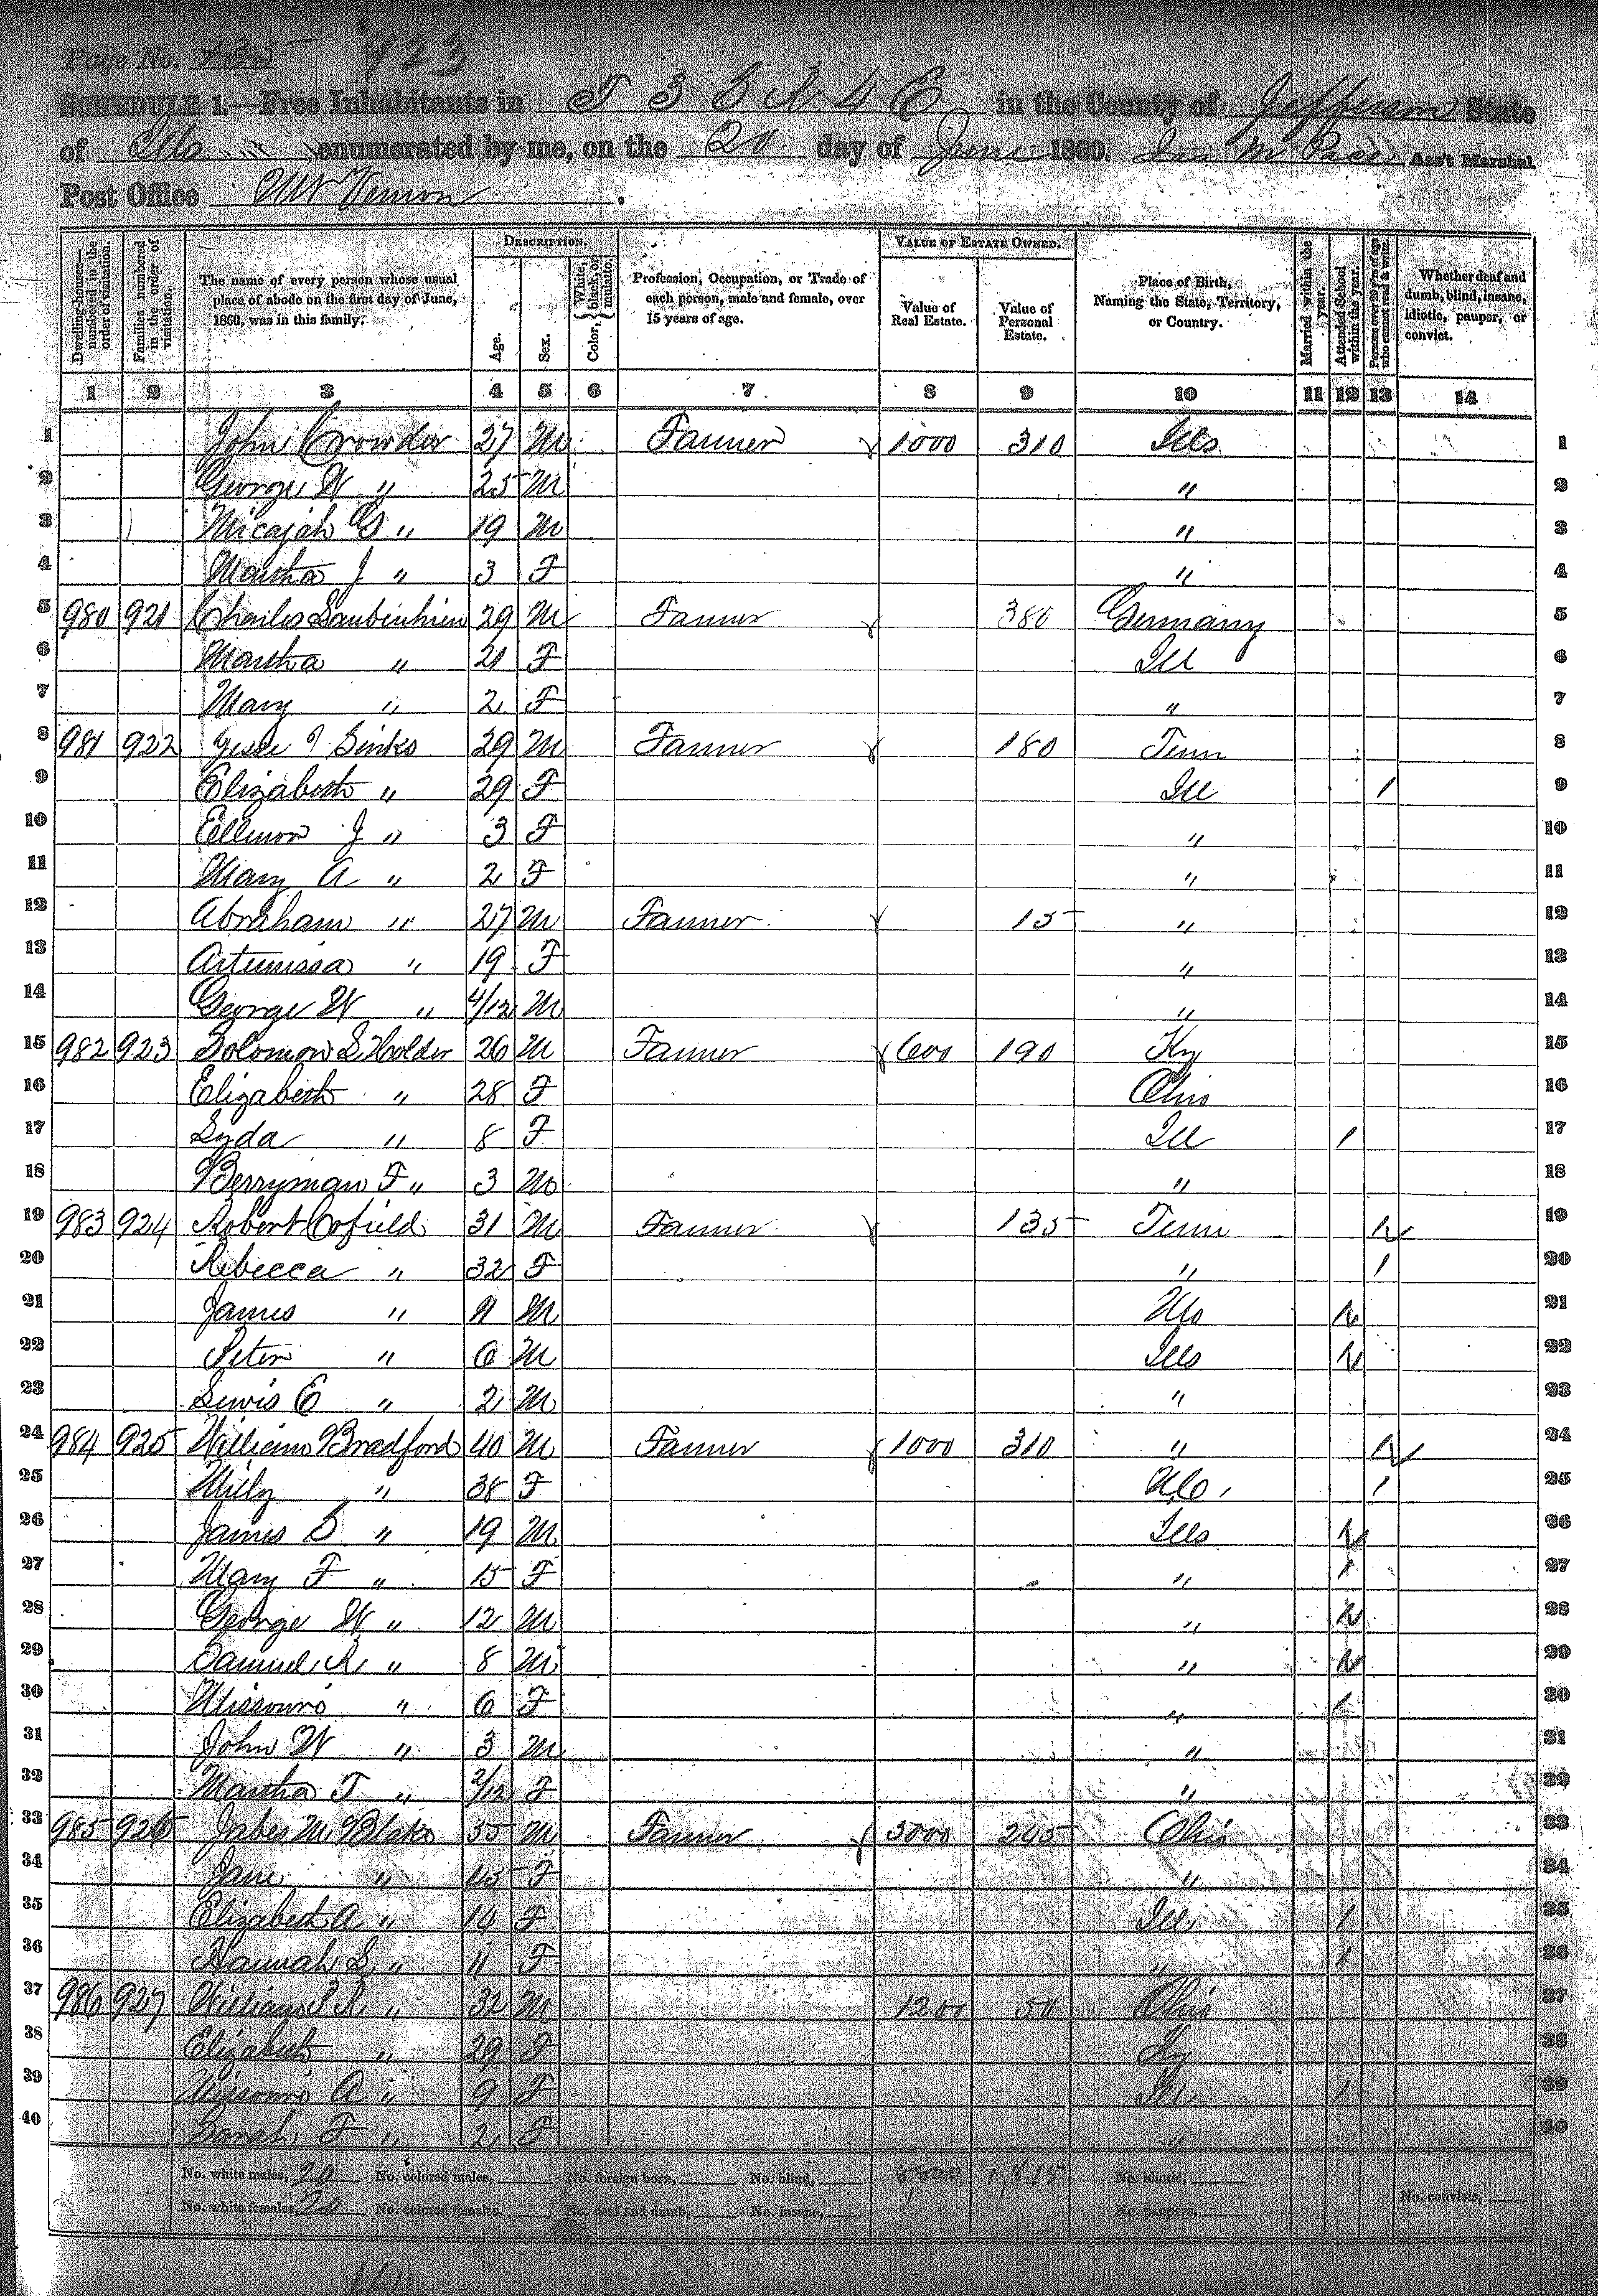 Page No. 135 923
SCHEDULE 1.—Free Inhabitants in T 3 S R 4 E in the County of Jefferson State
of Ills enumerated by me, on the 20 day of June 1860. Jas M Pace Ass't Marshal.
Post Office Mt Vernon.
DESCRIPTION. VALUE OF ESTATE OWNED.
Dwelling-houses—numbered in the order of visitation.
Families numbered in the order of visitation.
The name of every person whose usual place of abode on the first day of June, 1860, was in this family.
Age.
Sex.
Color, {White, black, or mulatto.
Profession, Occupation, or Trade of each person, male and female, over 15 years of age.
Value of Real Estate.
Value of Personal Estate.
Place of Birth, Naming the State, Territory, or Country.
Married within the year.
Attended School within the year.
Persons over 20 y'rs of age who cannot read & write.
Whether deaf and dumb, blind, insane, idiotic, pauper, or convict.
1 2 3 4 5 6 7 8 9 10 11 12 13 14
1 John Crowder 27 M Farmer 1000 310 Ills 1
2 George W " 25 M " 2
3 Micajah G " 19 M " 3
4 Martha J " 3 F " 4
5 980 921 Charles 29 M Farmer 380 Germany 5
6 Martha " 21 F Ill 6
7 Mary " 2 F " 7
8 981 922 Jesse Sinks 29 M Farmer 180 Tenn 8
9 Elizabeth " 29 F Ill / 9
10 Ellenor J " 3 F " 10
11 Mary A " 2 F " 11
12 Abraham " 27 M Farmer 15 " 12
13 Artemissa " 19 F " 13
14 George W " 4/12 M " 14
15 982 923 Solomon S Holder 26 M Farmer 600 190 Ky 15
16 Elizabeth " 28 F Ohio 16
17 Lyda " 8 F Ill / 17
18 Berryman F " 3 M " 18
19 983 924 Robert Cofield 31 M Farmer 135 Tenn 19
20 Rebecca " 32 F " / 20
21 James " M Ills 21
22 Peter " 6 M Ills 22
23 Lewis E " 2 M " 23
24 984 925 William Bradford 40 M Farmer 1000 310 " 24
25 Mily " 38 F / 25
26 James S " 19 M Ills 26
27 Mary F " 15 F " / 27
28 George W " 12 M " 28
29 Samuel R " 8 M " 29
30 Missouri " 6 F " / 30
31 John W " 3 M " 31
32 Martha T " 2/12 F " 32
33 985 926 Jabes M Blake 55 M Farmer 5000 245 Ohio 33
34 Jane " 45 F " 34
35 Elizabeth A " 14 F Ill / 35
36 Hannah L " 11 F " / 36
37 986 927 William " 32 M 1200 50 Ohio 37
38 Elizabeth " 29 F Ky 38
39 Missouri A " 9 F Ill / 39
40 Sarah F " 2 F " 40
No. white males, 20 No. colored males, No. foreign born, No. blind, 8800 1,815 No. idiotic,
No. white females, 20 No. colored females, No. deaf and dumb, No. insane, No. paupers, No. convicts,